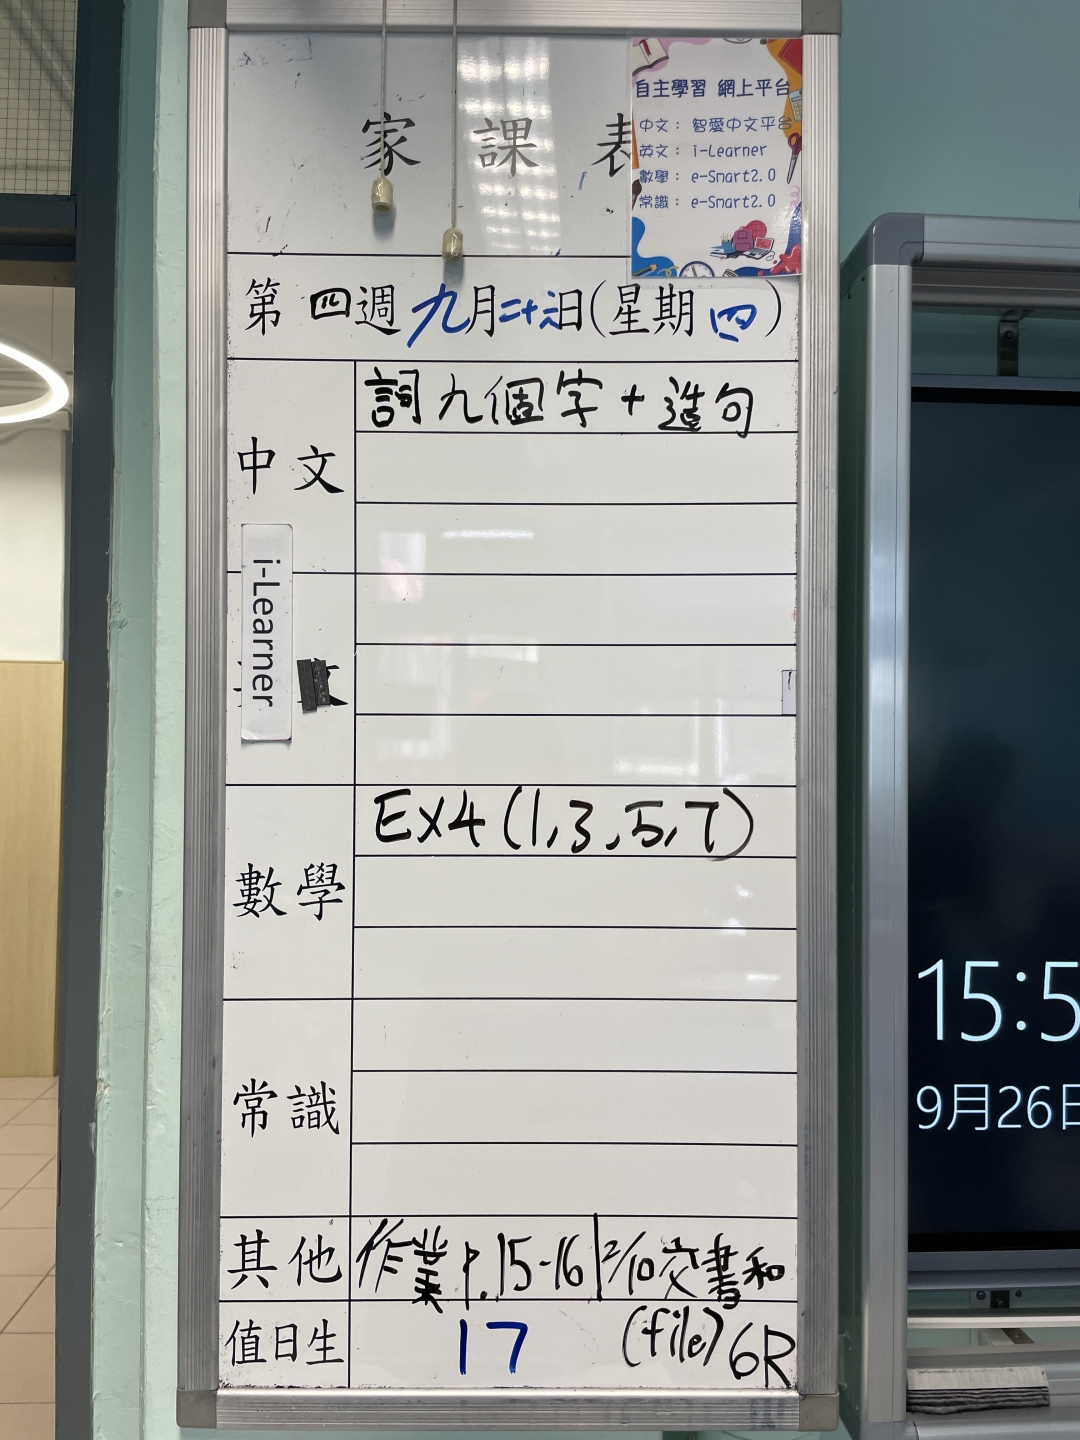 家課表
自主學習 網上平台
中文： 智愛中文平台
英文： i-Learner
數學： e-Smart2.0
常識： e-Smart2.0
第四週九月二十六日(星期四)
中文
詞九個字+造句
i-Learner
數學
EX4(1,3,5,7)
常識
其他
作業p.15-16|2/10交書和
(file)
值日生
17
6R
15:5
9月26日